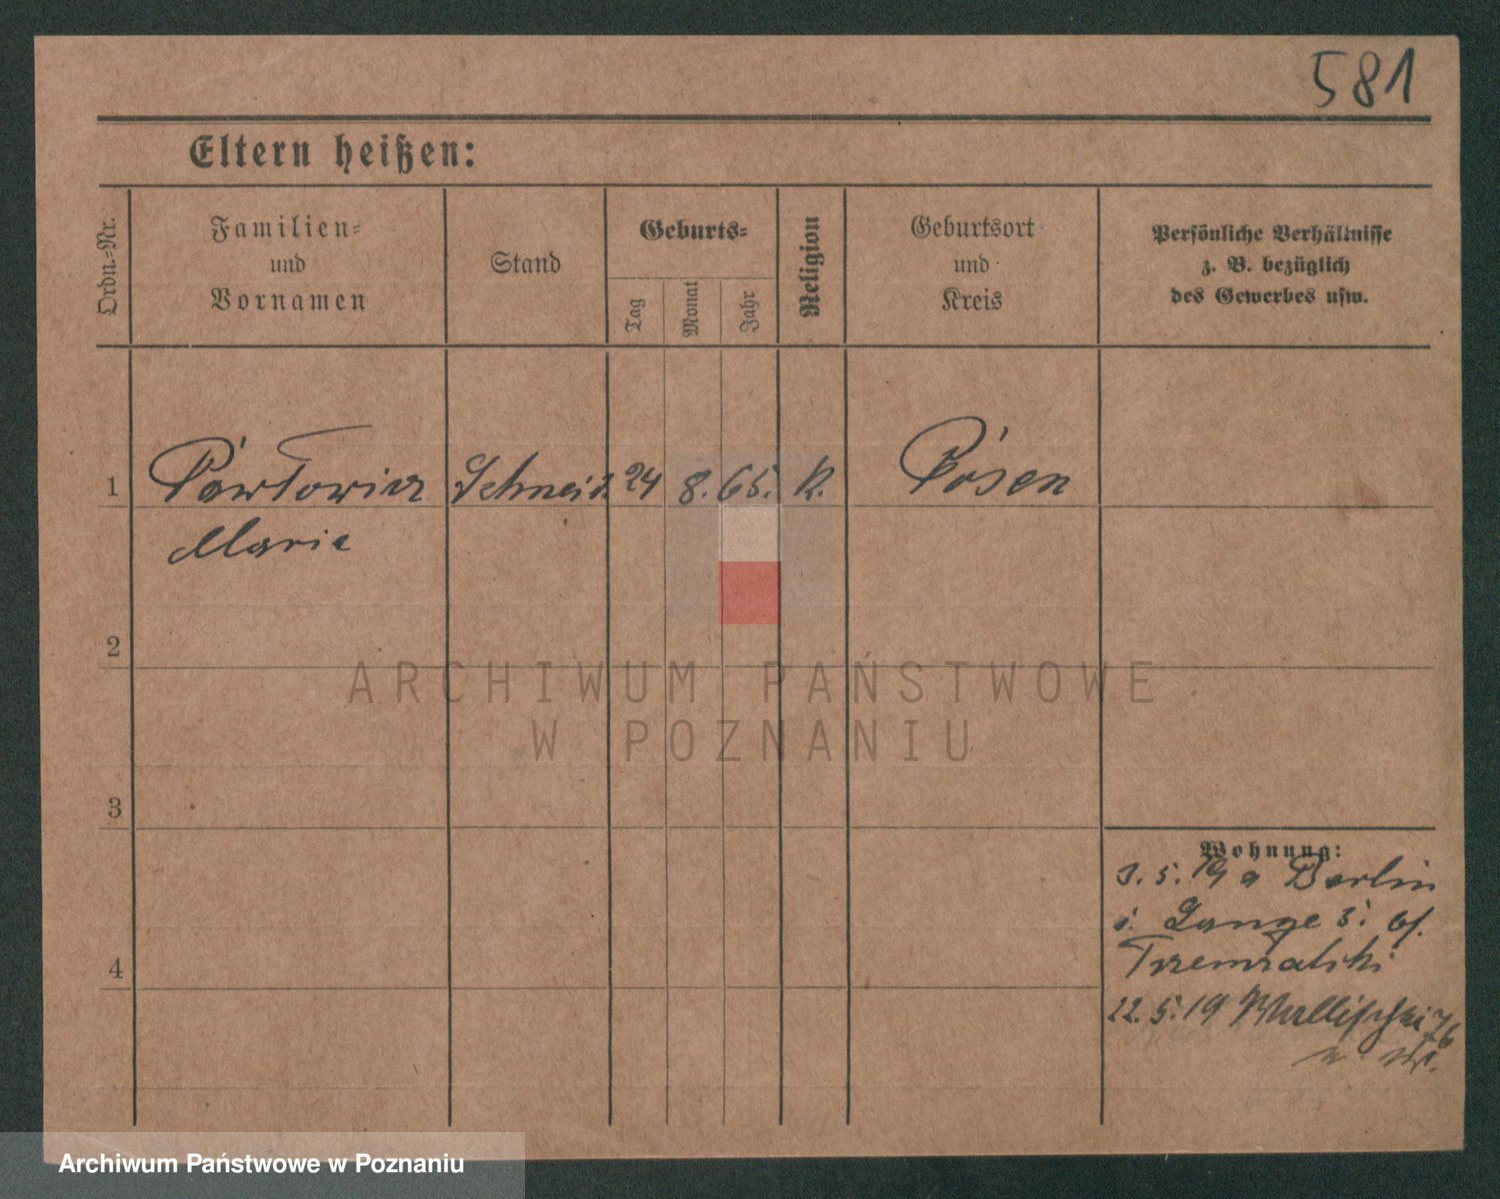 581
Eltern heißen:
Ordn.-Nr.
Familien-
und
Vornamen
Stand
Geburts-
Tag
Monat
Jahr
Religion
Geburtsort
und
Kreis
Persönliche Verhältnisse
z. B. bezüglich
des Gewerbes usw.
1 Pawłowicz Schneid. 24 8. 65. K. Posen
Marie
2
ARCHIWUM PAŃSTWOWE
W POZNANIU
3
Wohnung:
3. 5. 19 a Berlin
i. Lange 5.
4
22. 5. 19 Wallischei 76
Archiwum Państwowe w Poznaniu